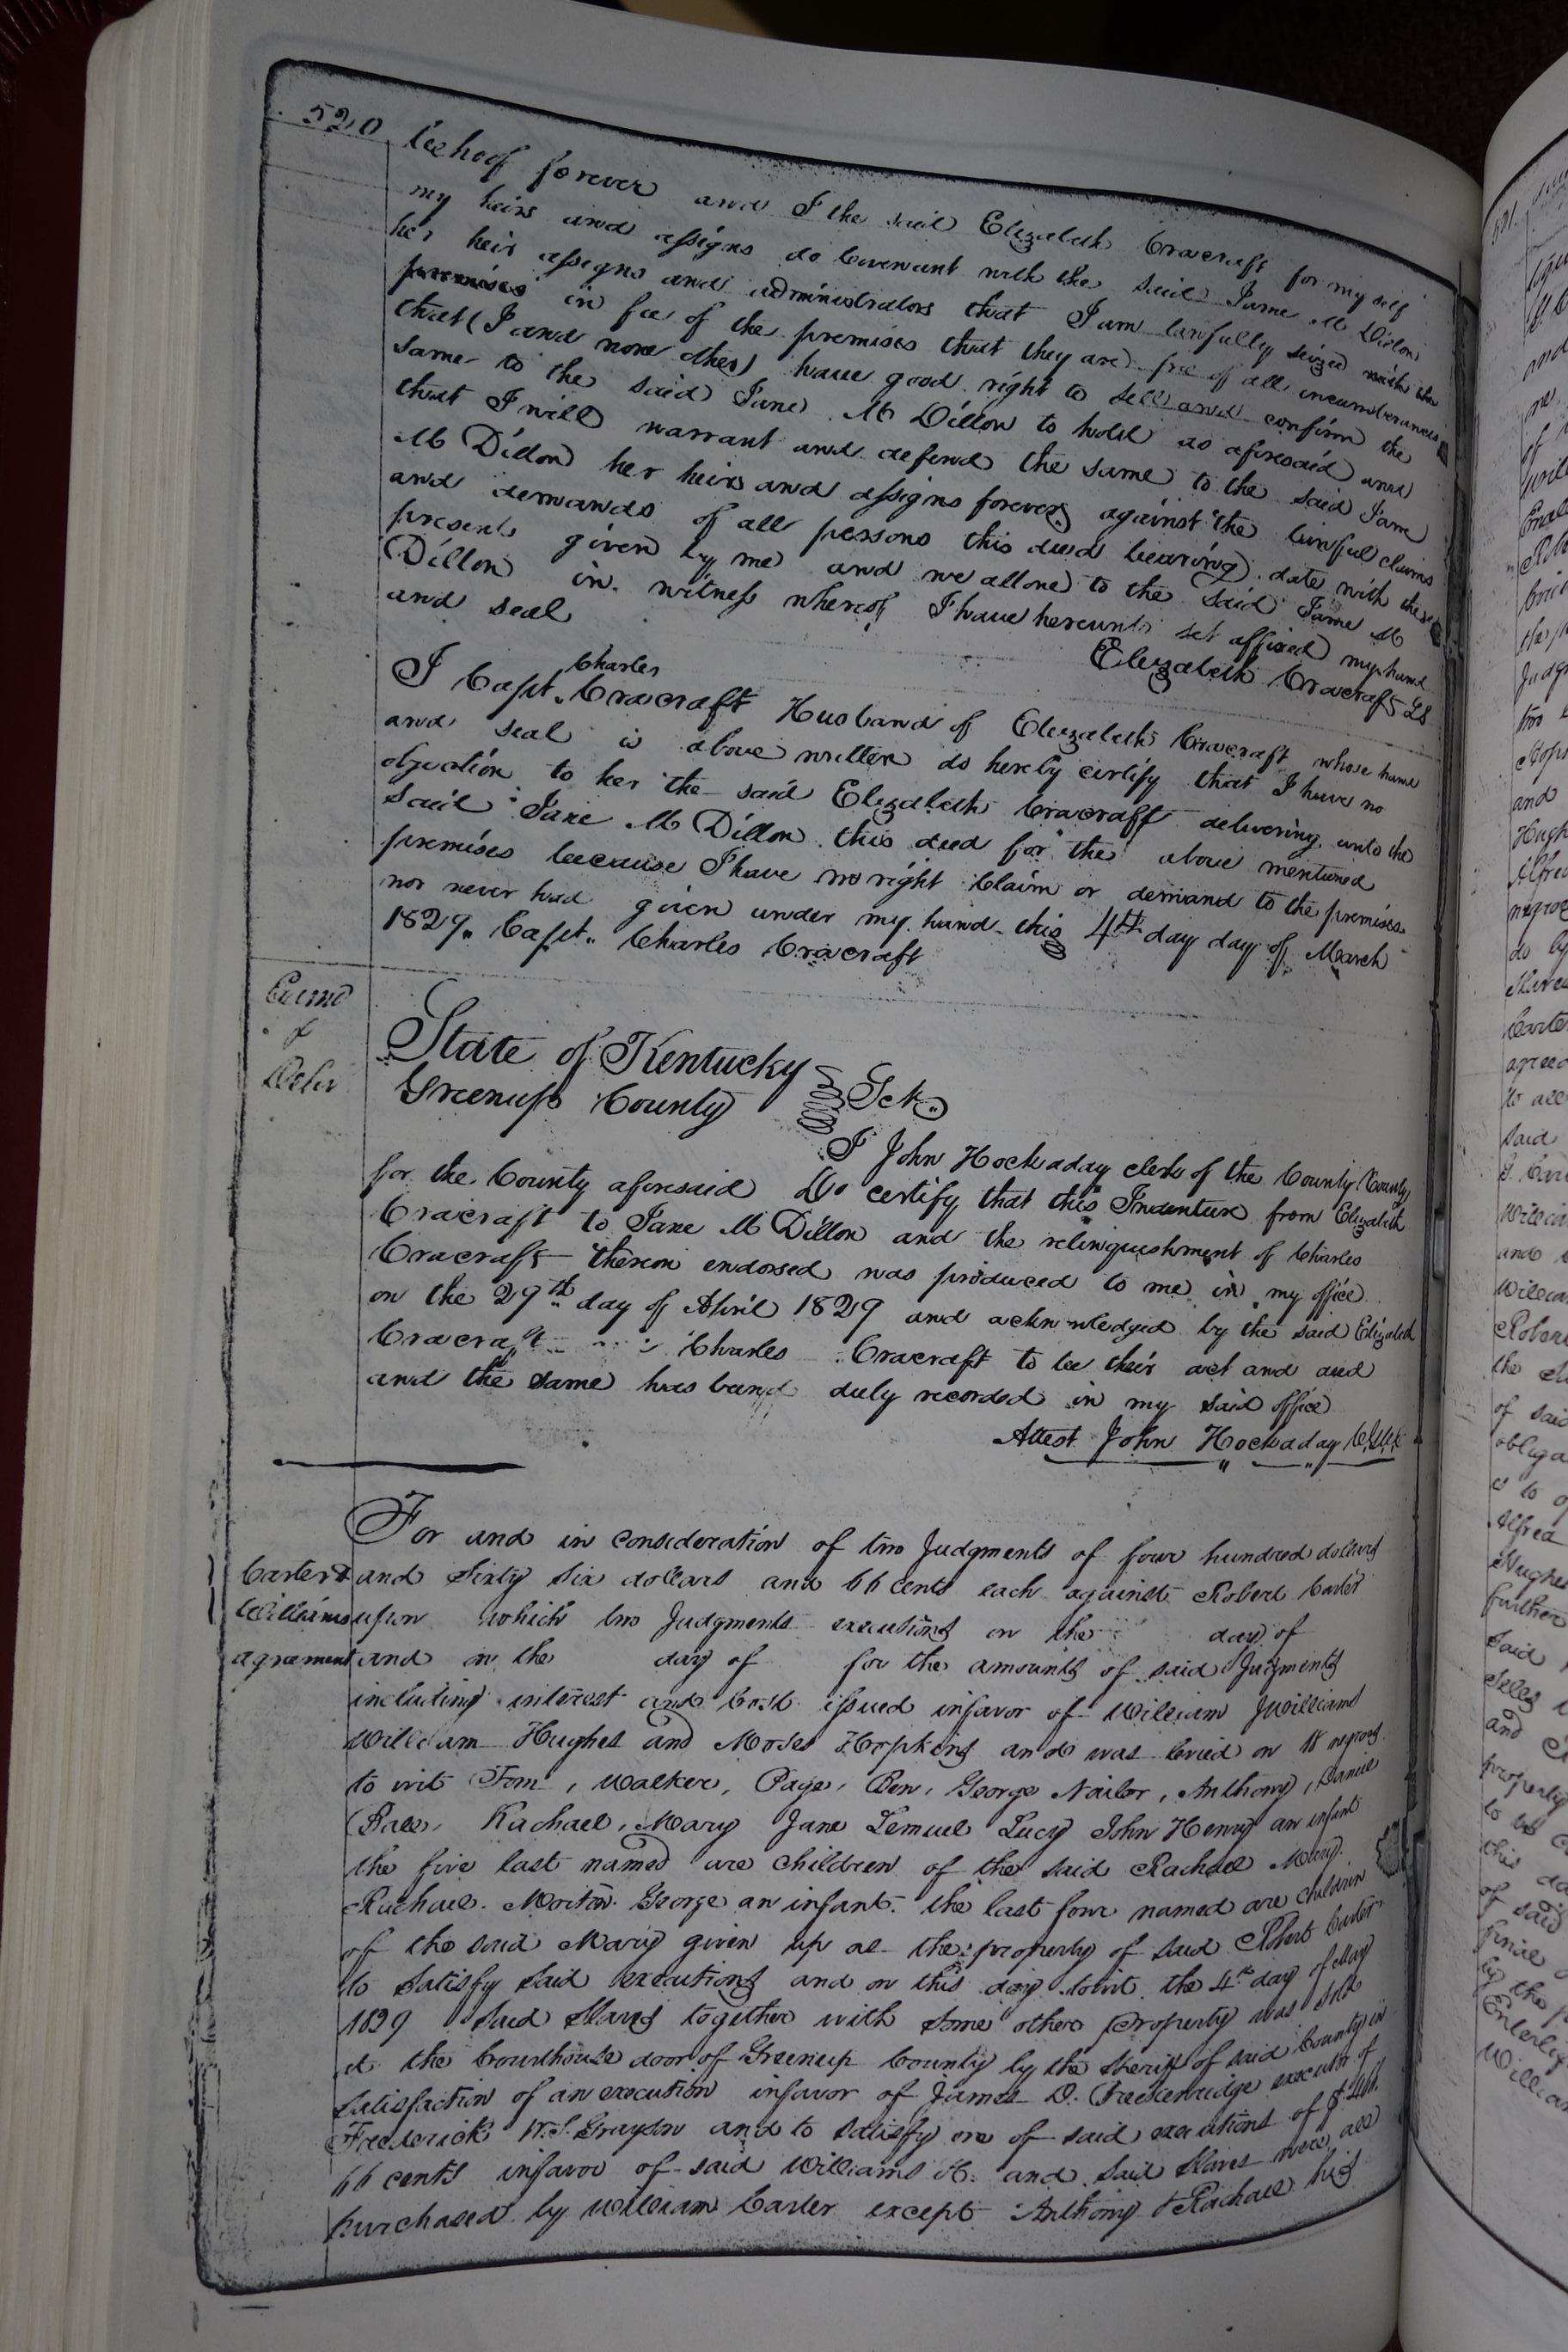 520
beehoof forever and I the said Elizabeth Cracraft for my self
my heirs and assigns do Covenant with the said Jame Mc Dillon
her heir assigns and administrators that I am lawfully seized with the
premises in fee of the premises that they are free of all incumbrances
that (I and none other) have good right to sell and confirm the
same to the said Jane Mc Dillon to hold as aforesaid and
that I will warrant and defend the same to the said Jane
Mc Dillon her heirs and assigns forever against the lawful claims
and demands of all persons this deed bearing date with these
presents given by me and me allone to the said Jame Mc
Dillon in witness whereof I have hereunto set affixed my hand
and seal
Elizabeth Cracraft LS
I Capt. Charles Cracraft Husband of Elizabeth Cracraft whose hand
and seal is above written do hereby certify that I have no
objection to her the said Elizabeth Cracraft delivering unto the
said Jane Mc Dillon this deed for the above mentioned
premises because I have no right Claim or demand to the premises
nor never had given under my hand this 4th day day of March
1829. Capt. Charles Cracraft
Examd
&
Deliv
State of Kentucky
Greenup County Sct.
I John Hockaday clerk of the County County
for the County aforesaid Do certify that this Indenture from Elizabeth
Cracraft to Jane Mc Dillon and the relinquishment of Charles
Cracraft thereon endorsed was produced to me in my office
on the 29th day of April 1829 and acknowledged by the said Elizabeth
Cracraft Charles Cracraft to be their act and deed
and the same has been duly recorded in my said office
Attest John Hockaday
For and in consideration of two Judgments of four hundred dollars
Carter & and Sixty Six dollars and 66 cents each against Robert Carter
Williams upon which two Judgments executions on the day of
agreement and on the day of for the amounts of said Judgments
including interest and Cost issued infavor of William J Williams
William Hughes and Moses Hopkins and was levied on 18 negros
to wit Tom, Walker, Page, Ben, George Nailor, Anthony, Daniel
Rachael, Mary Jane Lemuel Lucy John Henry an infant
the five last named are children of the said Rachael Mary.
Rachael. Morton. George an infant. the last four named are children
of the said Mary given up as the property of said Robert Carter
to Satisfy said executions and on this day towit the 4th day of May
1839 Said Slaves together with some other Property was sold
at the Courthouse door of Greenup County by the Sheriff of said County in
satisfaction of an execution infavor of James D. Breckenridge executor of
Frederick W. S. Grayson and to satisfy one of said executions of $466
66 cents infavor of said Williams H. and said Slaves were all
purchased by William Carter except Anthony & Rachael his